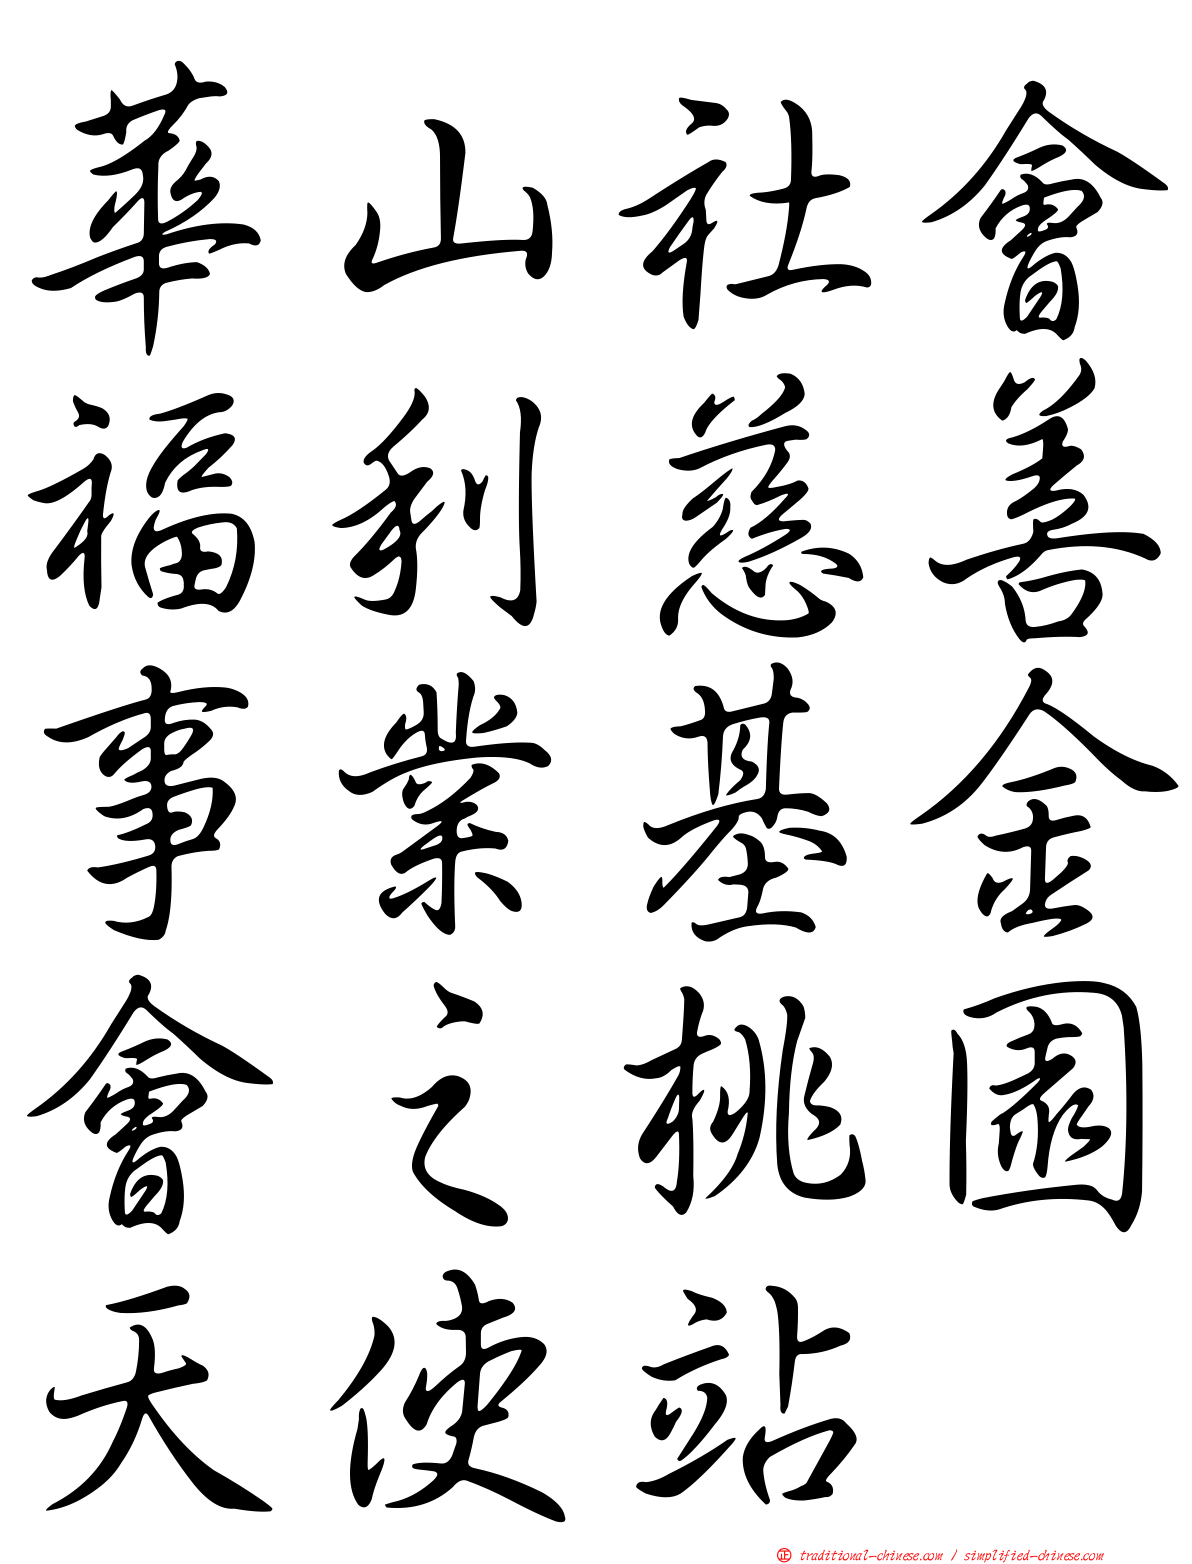 華山社會
福利慈善
事業基金
會之桃園
天使站
正 traditional-chinese.com / simplified-chinese.com